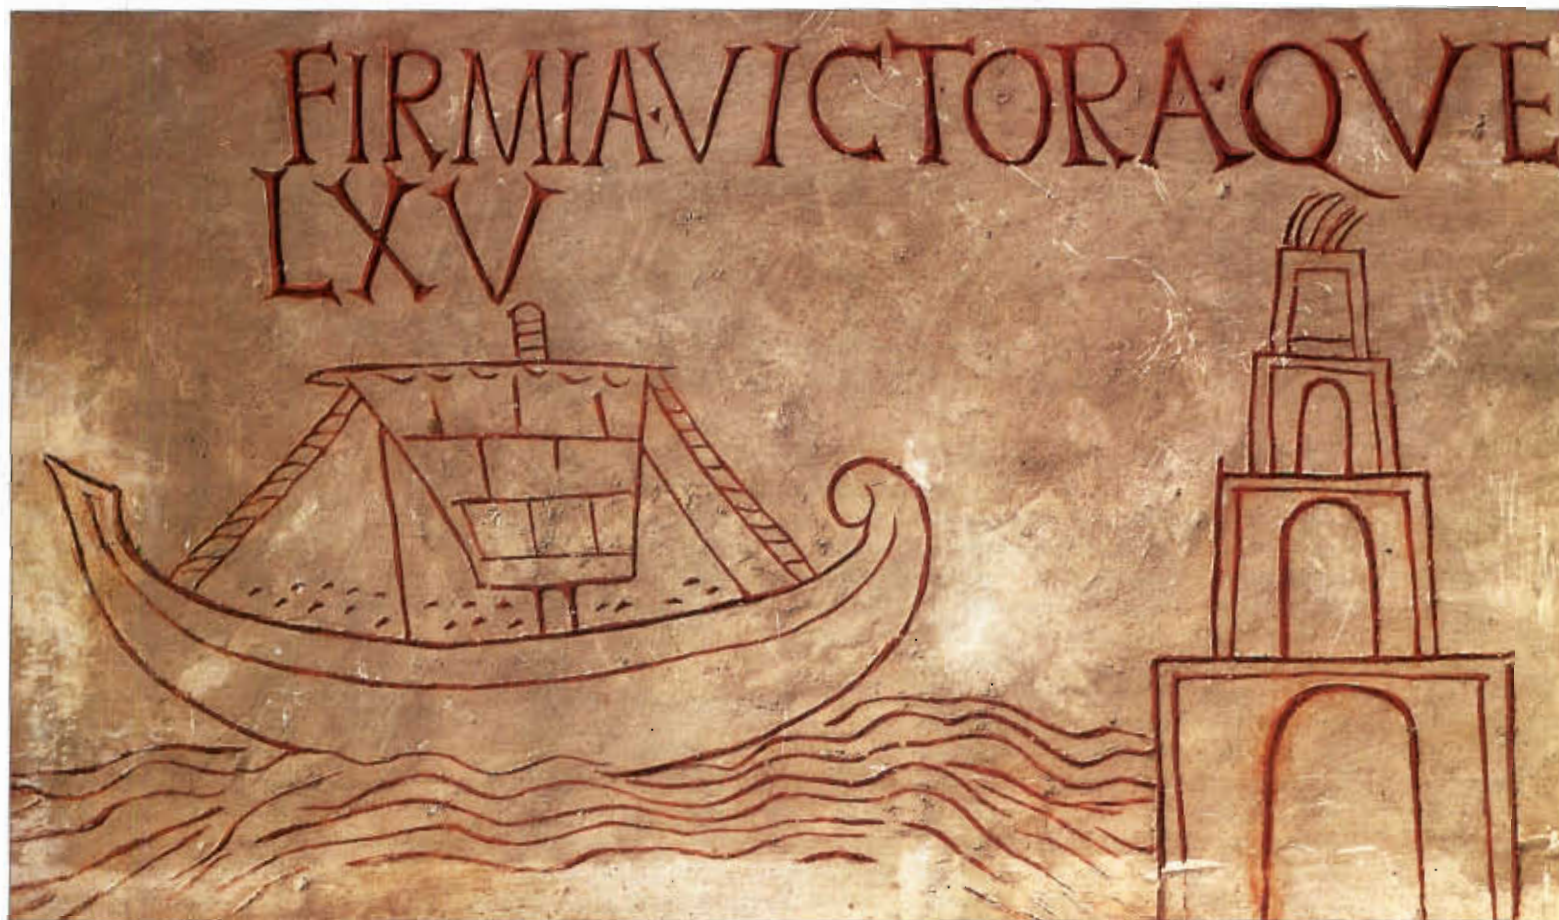 FIRMIA·VICTORA·QVE
LXV